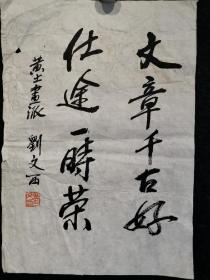 文章千古好
仕途一時荣
黄土畫派 劉文西